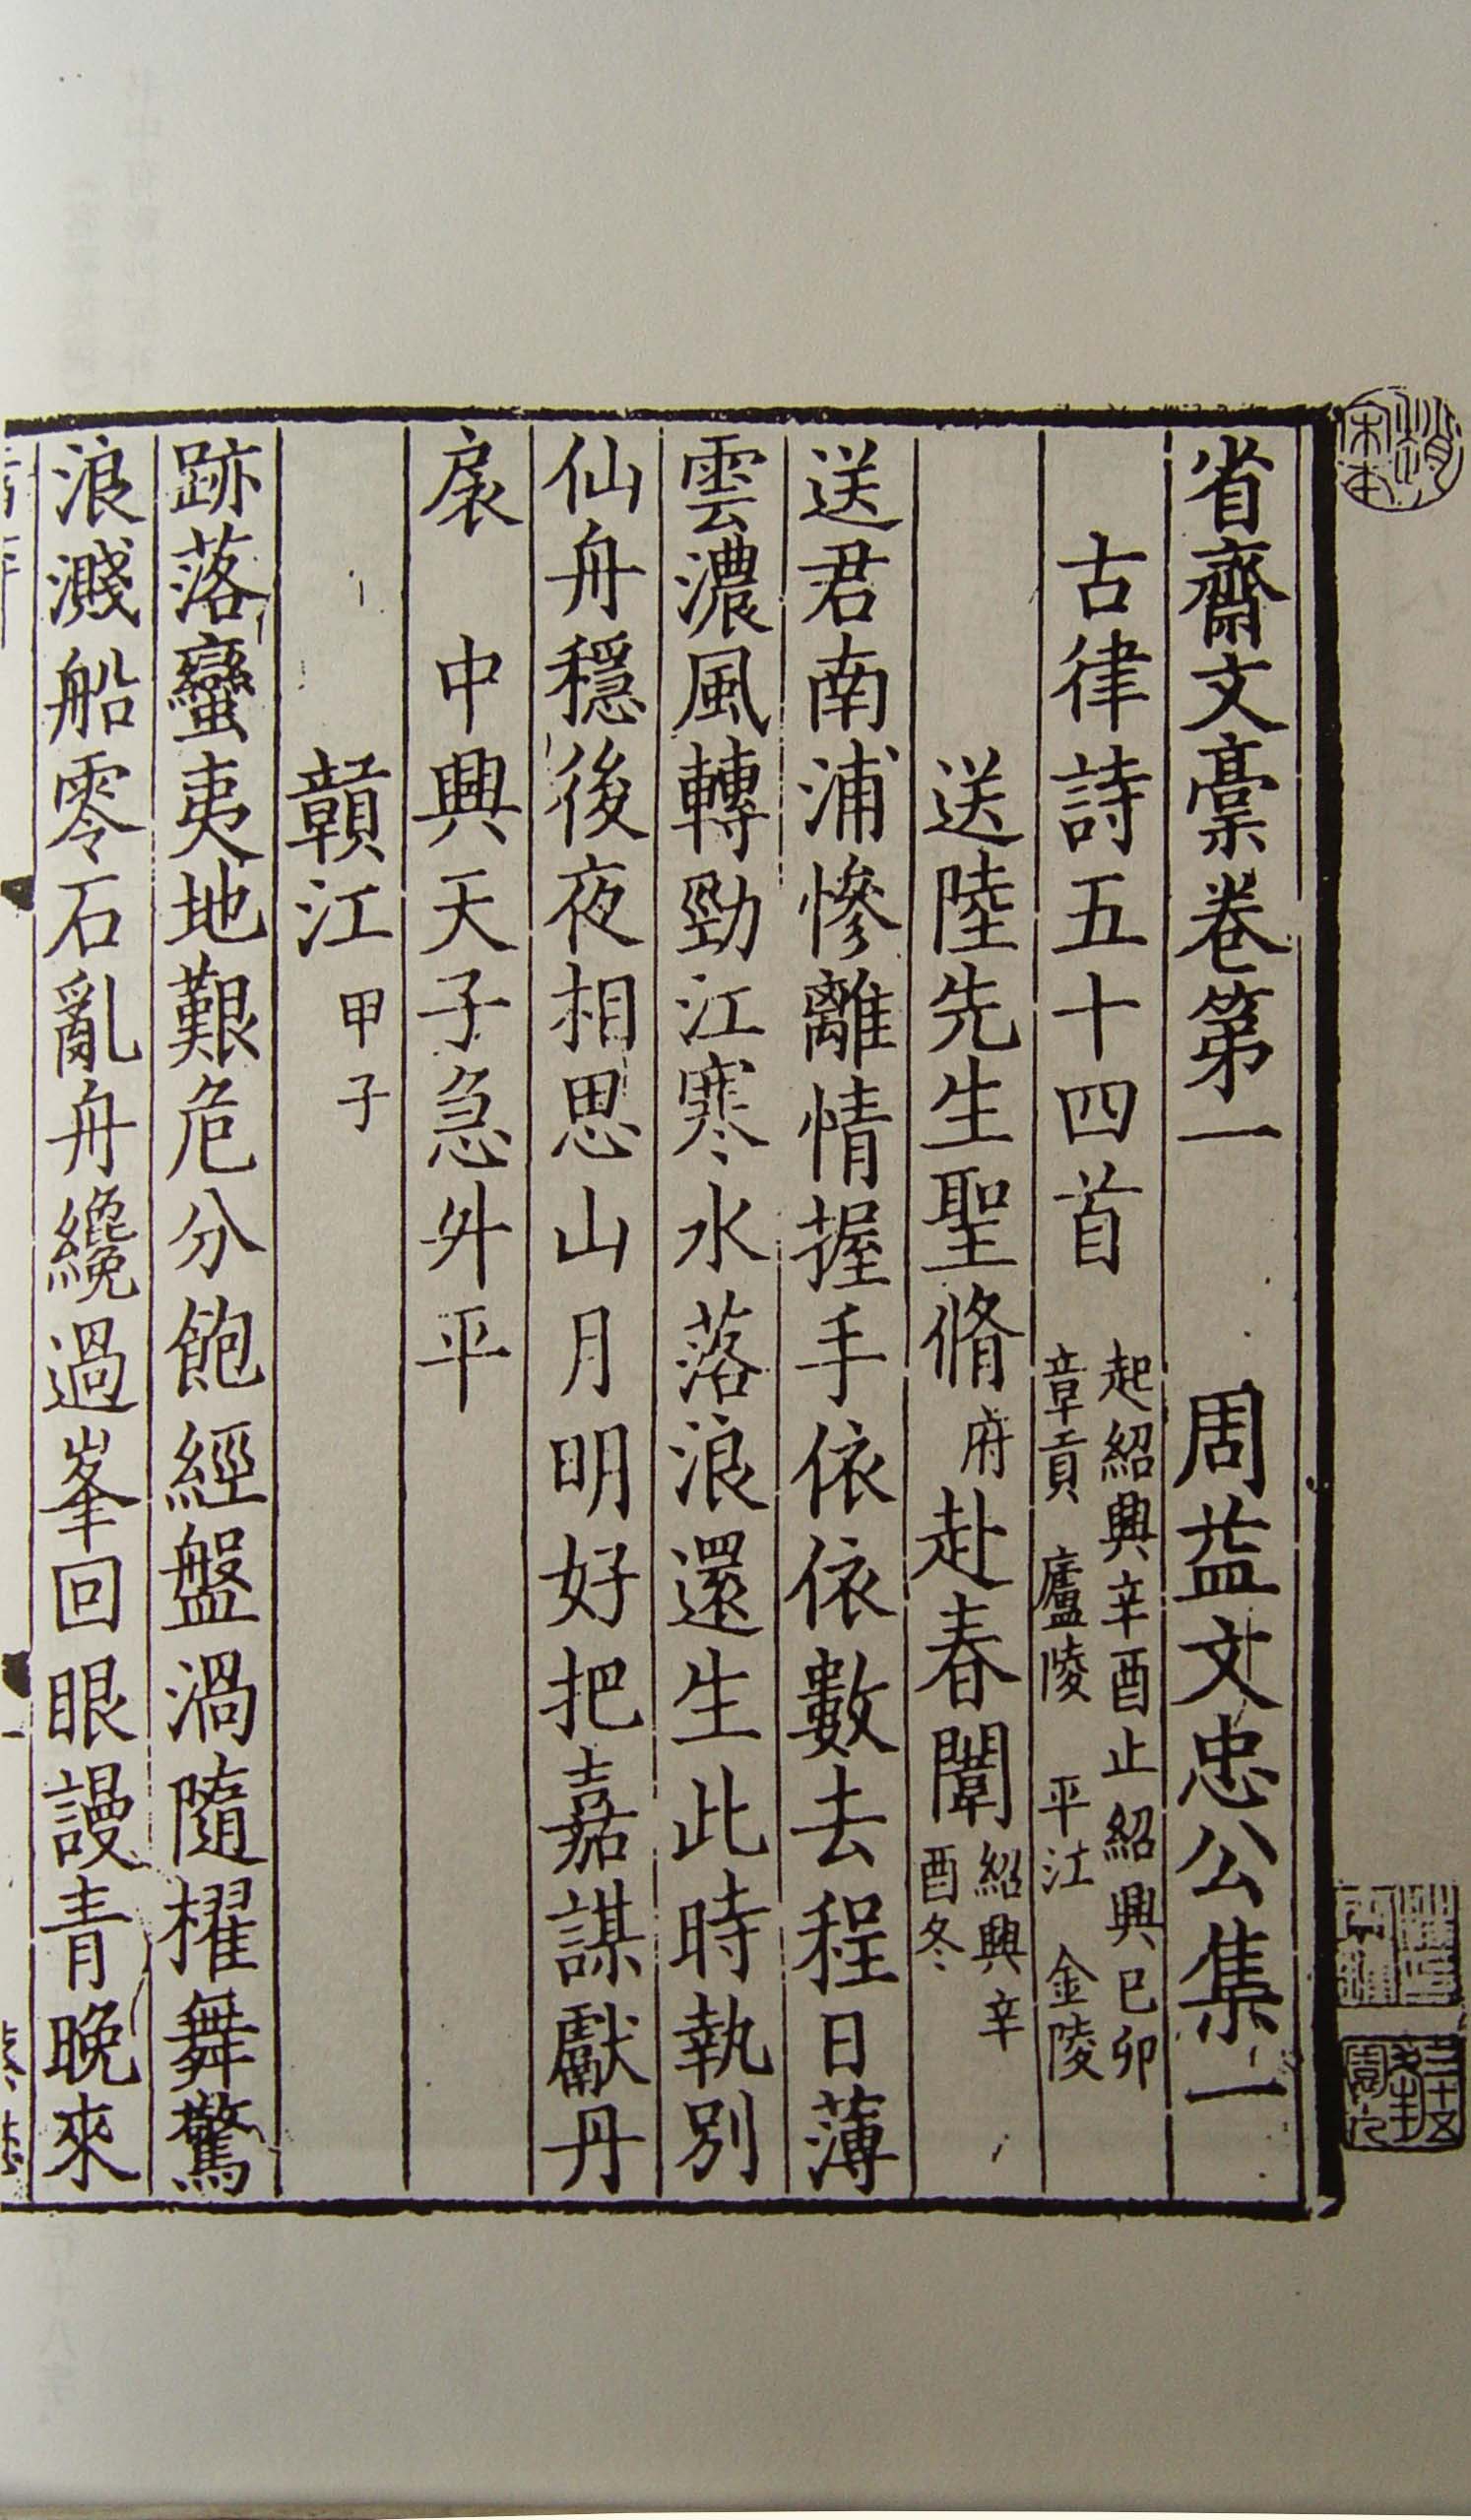 省齋文稾卷第一　周益文忠公集一
古律詩五十四首　起紹興辛酉止紹興已卯章貢　廬陵　平江　金陵
送陸先生聖脩府赴春闈紹興辛酉冬
送君南浦慘離情握手依依數去程日薄
雲濃風轉勁江寒水落浪還生此時執別
仙舟穩後夜相思山月明好把嘉謀獻丹
扆　中興天子急升平
贛江甲子
跡落蠻夷地艱危分飽經盤渦隨櫂舞驚
浪濺船零石亂舟纔過峯回眼謾青晚來